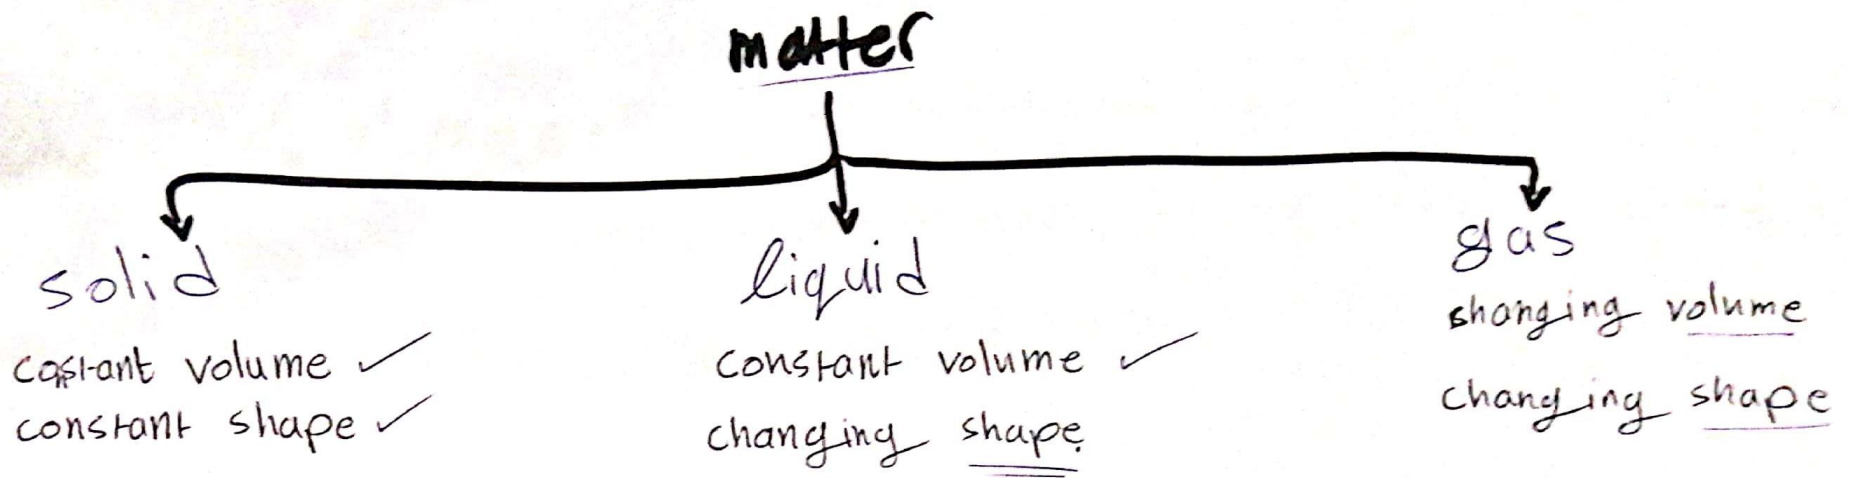 matter
solid
costant volume
constant shape
liquid
constant volume
changing shape.
gas
shanging volume
changing shape